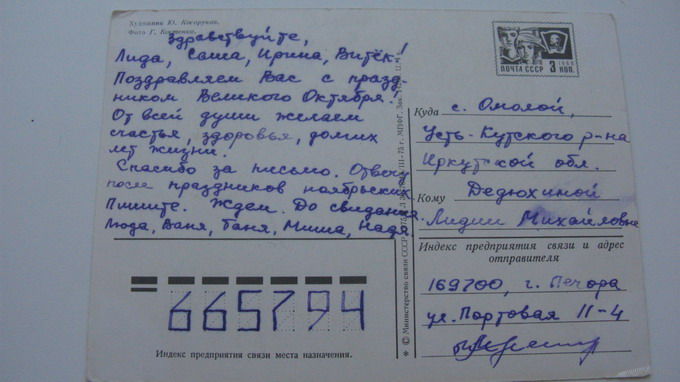 Художник Ю. Косоруков.
Фото Г. Костенко.
Здравствуйте,
Лида, Саша, Ирина, Витёк!
Поздравляем Вас с празд-
ником Великого Октября!
От всей души желаем
счастья, здоровья, долгих
лет жизни.
Спасибо за письмо. Отвечу
после праздников ноябрьских
Пишите. Ждём. До свидания.
Люда, Ваня, Таня, Миша, Надя.
665794
Индекс предприятия связи места назначения.
© Министерство связи СССР
ПОЧТА СССР
3 КОП.
Куда с. Омолой,
Усть-Кутского р-на
Иркутской обл.
Кому Дедюхиной
Лидии Михайловне
Индекс предприятия связи и адрес
отправителя
169700, г. Печора
ул. Портовая 11-4